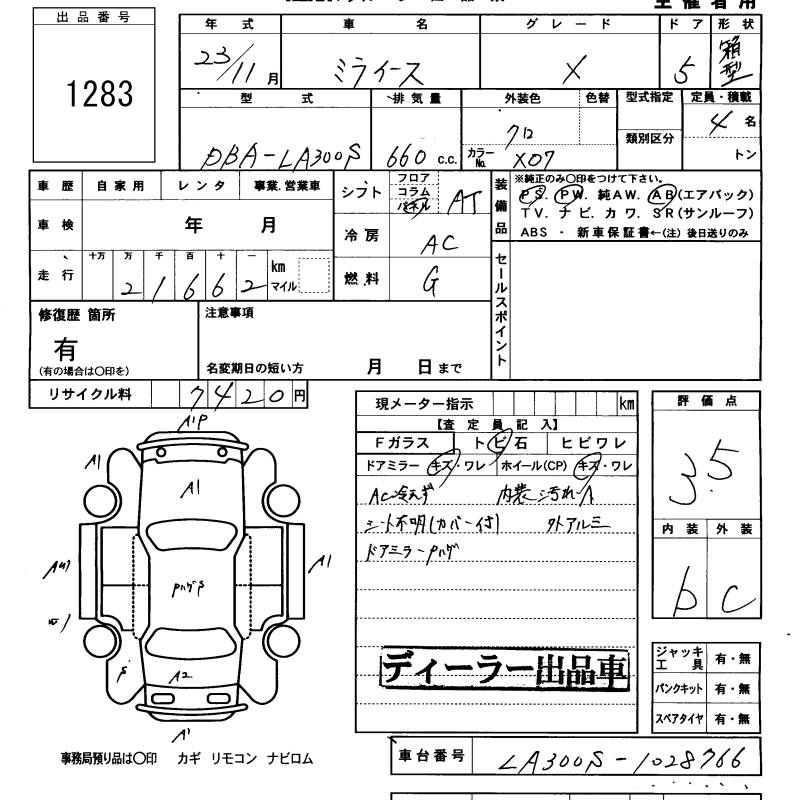 出品番号
1283
年式 車名 グレード ドア 形状
23/11月 ミライース X 5 箱型
型式 排気量 外装色 色替 型式指定 定員・積載
DBA-LA300S 660 c.c. クロ カラーNo. X07 類別区分 4名
トン
車歴 自家用 レンタ 事業.営業車
車検 年 月
走行 十万 万 千 百 十 一 km マイル
2 1 6 6 2
シフト フロア コラム パネル AT
冷房 AC
燃料 G
装備品 ※純正のみ〇印をつけて下さい。
PS. PW. 純AW. AB(エアバック)
TV. ナビ. カワ. SR(サンルーフ)
ABS ・ 新車保証書←(注) 後日送りのみ
セールスポイント
修復歴 箇所
有
(有の場合は〇印を)
注意事項
名変期日の短い方 月 日まで
リサイクル料 7420円
現メーター指示 km
【査定員記入】
Fガラス トビ石 ヒビワレ
ドアミラー キズ・ワレ ホイール(CP) キズ・ワレ
AC冷えず 内装汚れA
シート不明(カバー付) 外アルミ
ドアミラーPハゲ
ディーラー出品車
評価点
3.5
内装 外装
b C
ジャッキ工具 有・無
パンクキット 有・無
スペアタイヤ 有・無
A1P
A1
A1
A1
PハゲS
S
A2
A1
事務局預り品は〇印 カギ リモコン ナビロム
車台番号 LA300S-1028766